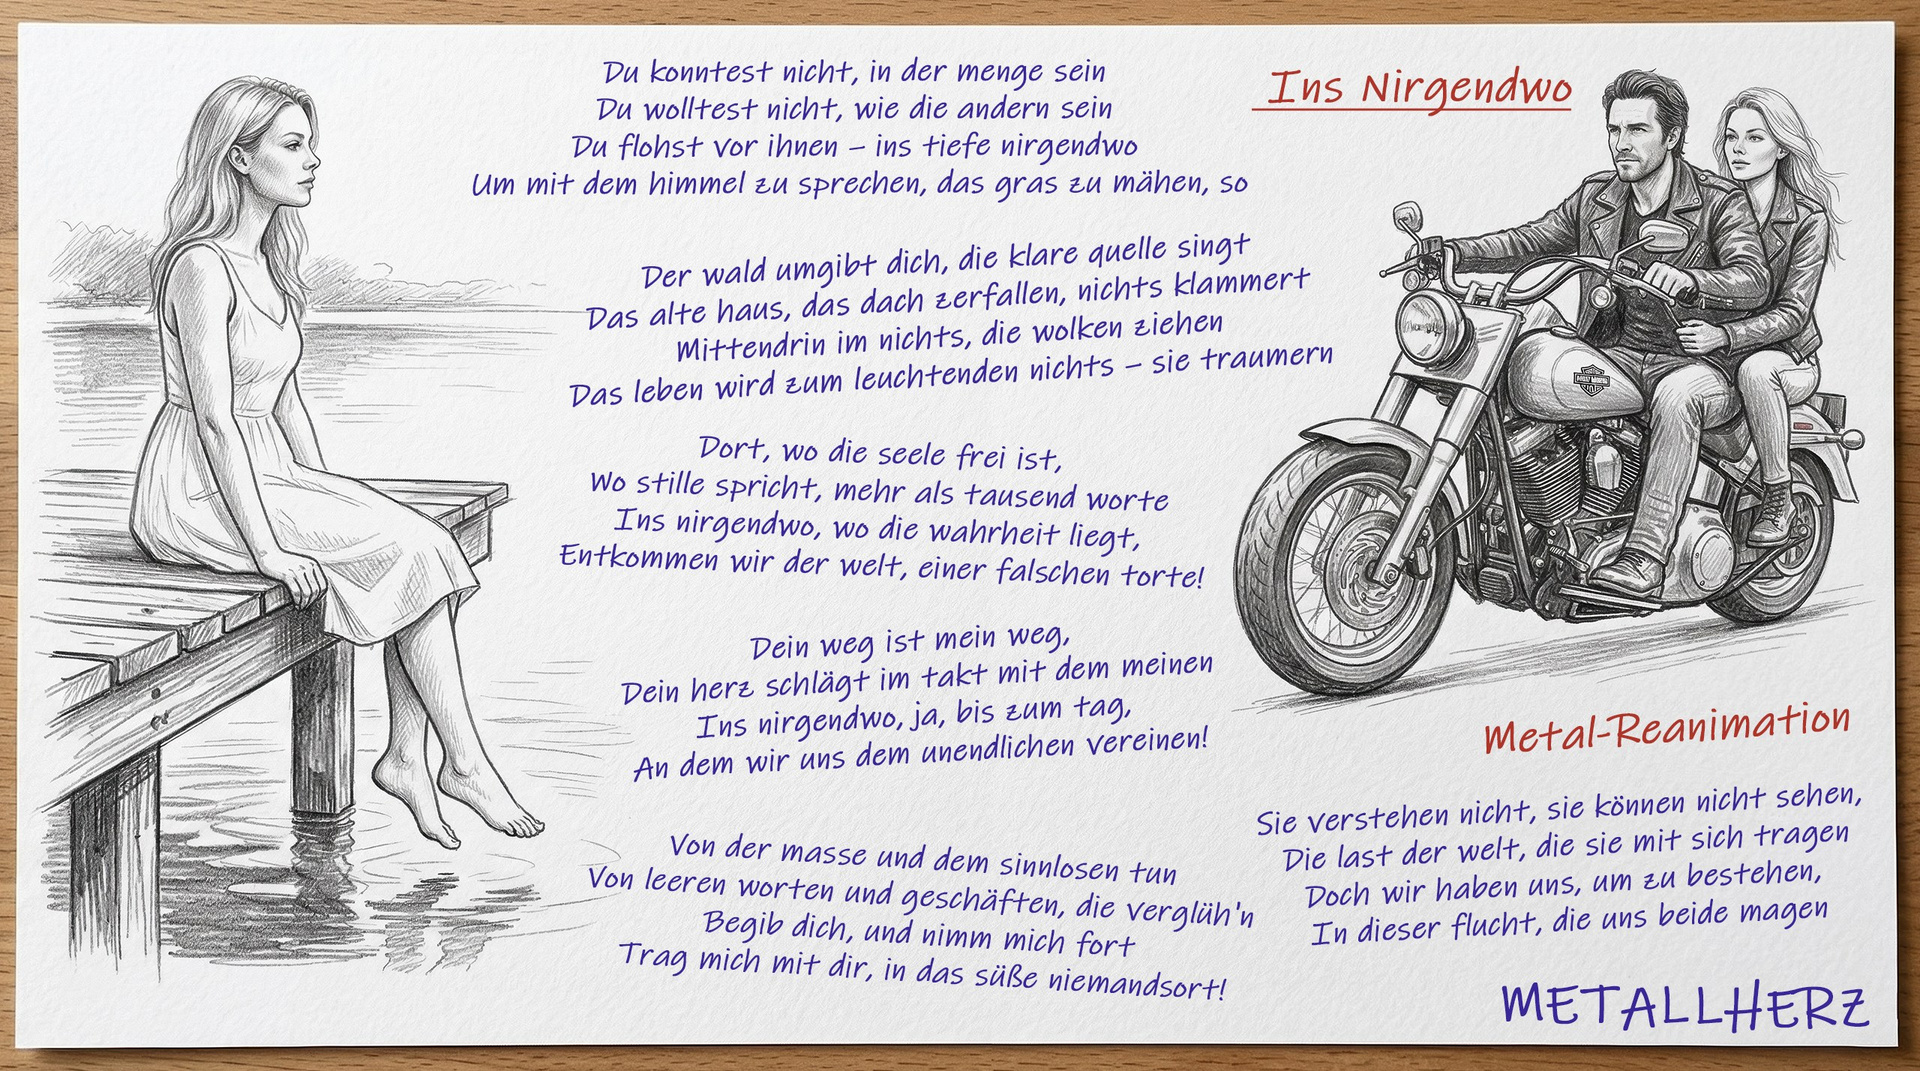 Ins Nirgendwo
Du konntest nicht, in der menge sein
Du wolltest nicht, wie die andern sein
Du flohst vor ihnen – ins tiefe nirgendwo
Um mit dem himmel zu sprechen, das gras zu mähen, so
Der wald umgibt dich, die klare quelle singt
Das alte haus, das dach zerfallen, nichts klammert
Mittendrin im nichts, die wolken ziehen
Das leben wird zum leuchtenden nichts – sie traumern
Dort, wo die seele frei ist,
Wo stille spricht, mehr als tausend worte
Ins nirgendwo, wo die wahrheit liegt,
Entkommen wir der welt, einer falschen torte!
Dein weg ist mein weg,
Dein herz schlägt im takt mit dem meinen
Ins nirgendwo, ja, bis zum tag,
An dem wir uns dem unendlichen vereinen!
Von der masse und dem sinnlosen tun
Von leeren worten und geschäften, die verglüh'n
Begib dich, und nimm mich fort
Trag mich mit dir, in das süße niemandsort!
Metal-Reanimation
Sie verstehen nicht, sie können nicht sehen,
Die last der welt, die sie mit sich tragen
Doch wir haben uns, um zu bestehen,
In dieser flucht, die uns beide magen
METALLHERZ